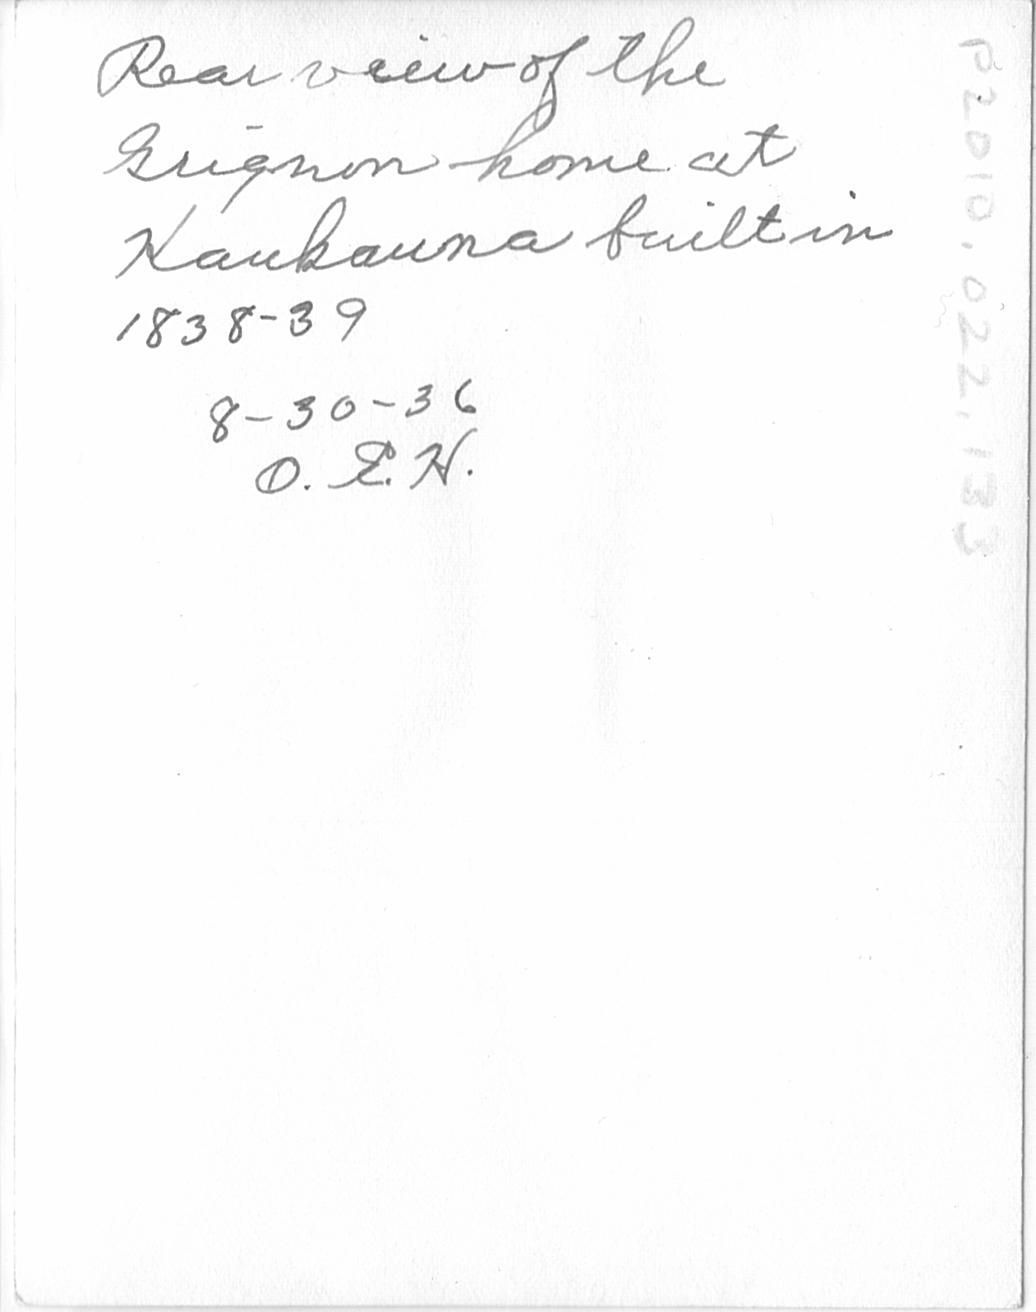 Rear view of the
Grignon home at
Kaukauna built in
1838-39
8-30-36
O. E. H.
P2010.022.133